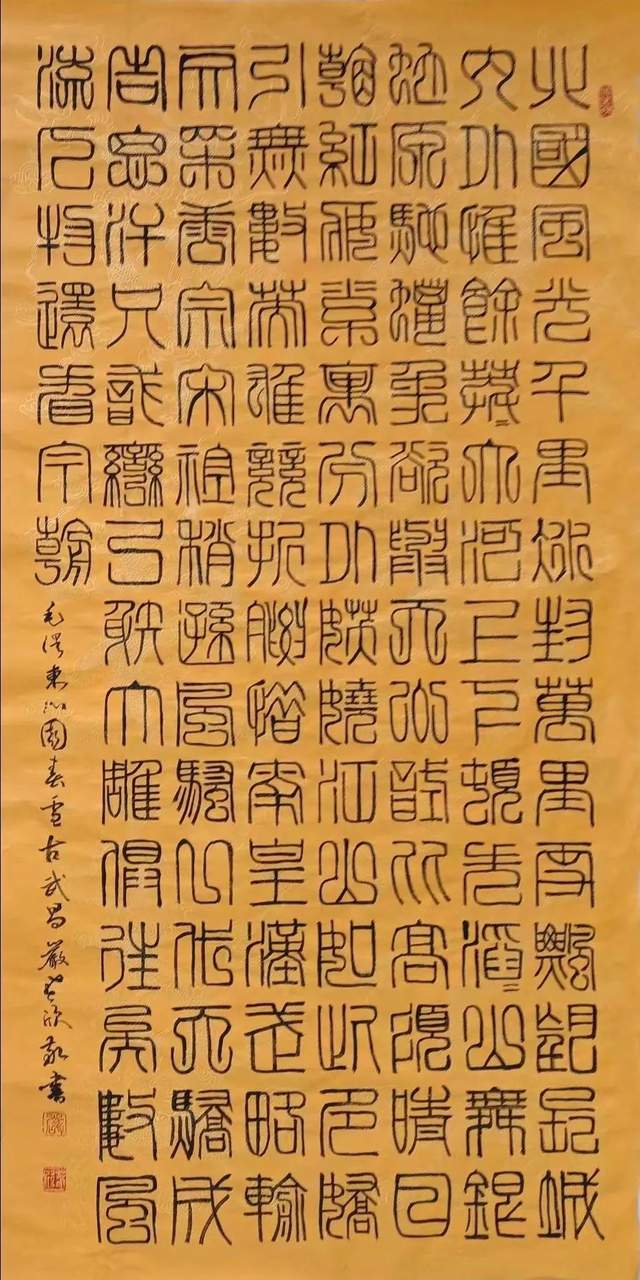 北國風光千里冰封萬里雪飄望長城
內外惟餘莽〻大河上下頓失滔〻山舞銀
蛇原馳蠟象欲與天公試比高須晴日
看紅裝素裹分外妖嬈江山如此多嬌
引無數英雄競折腰惜秦皇漢武略輸
文采唐宗宋祖稍遜風騷一代天驕成
吉思汗只識彎弓射大雕俱往矣數風
流人物還看今朝
毛澤東沁園春雪古武昌嚴欣敬書